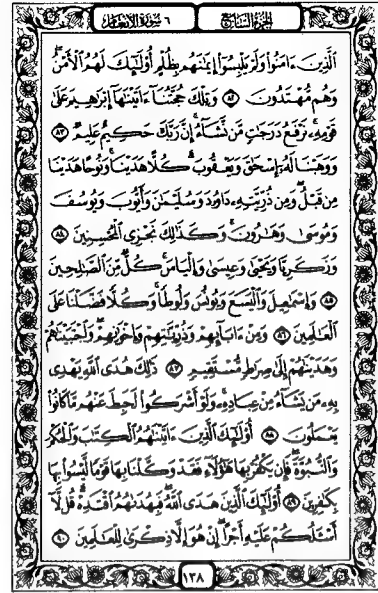 ٦ سورة الأنعام
الجزء السابع
الَّذِينَ ءَامَنُوا۟ وَلَمْ يَلْبِسُوٓا۟ إِيمَٰنَهُم بِظُلْمٍ أُو۟لَٰٓئِكَ لَهُمُ ٱلْأَمْنُ
وَهُم مُّهْتَدُونَ ٨٢ وَتِلْكَ حُجَّتُنَآ ءَاتَيْنَٰهَآ إِبْرَٰهِيمَ عَلَىٰ
قَوْمِهِۦ نَرْفَعُ دَرَجَٰتٍ مَّن نَّشَآءُ إِنَّ رَبَّكَ حَكِيمٌ عَلِيمٌ ٨٣
وَوَهَبْنَا لَهُۥٓ إِسْحَٰقَ وَيَعْقُوبَ كُلًّا هَدَيْنَا وَنُوحًا هَدَيْنَا
مِن قَبْلُ وَمِن ذُرِّيَّتِهِۦ دَاوُۥدَ وَسُلَيْمَٰنَ وَأَيُّوبَ وَيُوسُفَ
وَمُوسَىٰ وَهَٰرُونَ وَكَذَٰلِكَ نَجْزِى ٱلْمُحْسِنِينَ ٨٤
وَزَكَرِيَّا وَيَحْيَىٰ وَعِيسَىٰ وَإِلْيَاسَ كُلٌّ مِّنَ ٱلصَّٰلِحِينَ
٨٥ وَإِسْمَٰعِيلَ وَٱلْيَسَعَ وَيُونُسَ وَلُوطًا وَكُلًّا فَضَّلْنَا عَلَى
ٱلْعَٰلَمِينَ ٨٦ وَمِنْ ءَابَآئِهِمْ وَذُرِّيَّٰتِهِمْ وَإِخْوَٰنِهِمْ وَٱجْتَبَيْنَٰهُمْ
وَهَدَيْنَٰهُمْ إِلَىٰ صِرَٰطٍ مُّسْتَقِيمٍ ٨٧ ذَٰلِكَ هُدَى ٱللَّهِ يَهْدِى
بِهِۦ مَن يَشَآءُ مِنْ عِبَادِهِۦ وَلَوْ أَشْرَكُوا۟ لَحَبِطَ عَنْهُم مَّا كَانُوا۟
يَعْمَلُونَ ٨٨ أُو۟لَٰٓئِكَ ٱلَّذِينَ ءَاتَيْنَٰهُمُ ٱلْكِتَٰبَ وَٱلْحُكْمَ
وَٱلنُّبُوَّةَ فَإِن يَكْفُرْ بِهَا هَٰٓؤُلَآءِ فَقَدْ وَكَّلْنَا بِهَا قَوْمًا لَّيْسُوا۟ بِهَا
بِكَٰفِرِينَ ٨٩ أُو۟لَٰٓئِكَ ٱلَّذِينَ هَدَى ٱللَّهُ فَبِهُدَىٰهُمُ ٱقْتَدِهْ قُل لَّآ
أَسْـَٔلُكُمْ عَلَيْهِ أَجْرًا إِنْ هُوَ إِلَّا ذِكْرَىٰ لِلْعَٰلَمِينَ ٩٠
١٣٨